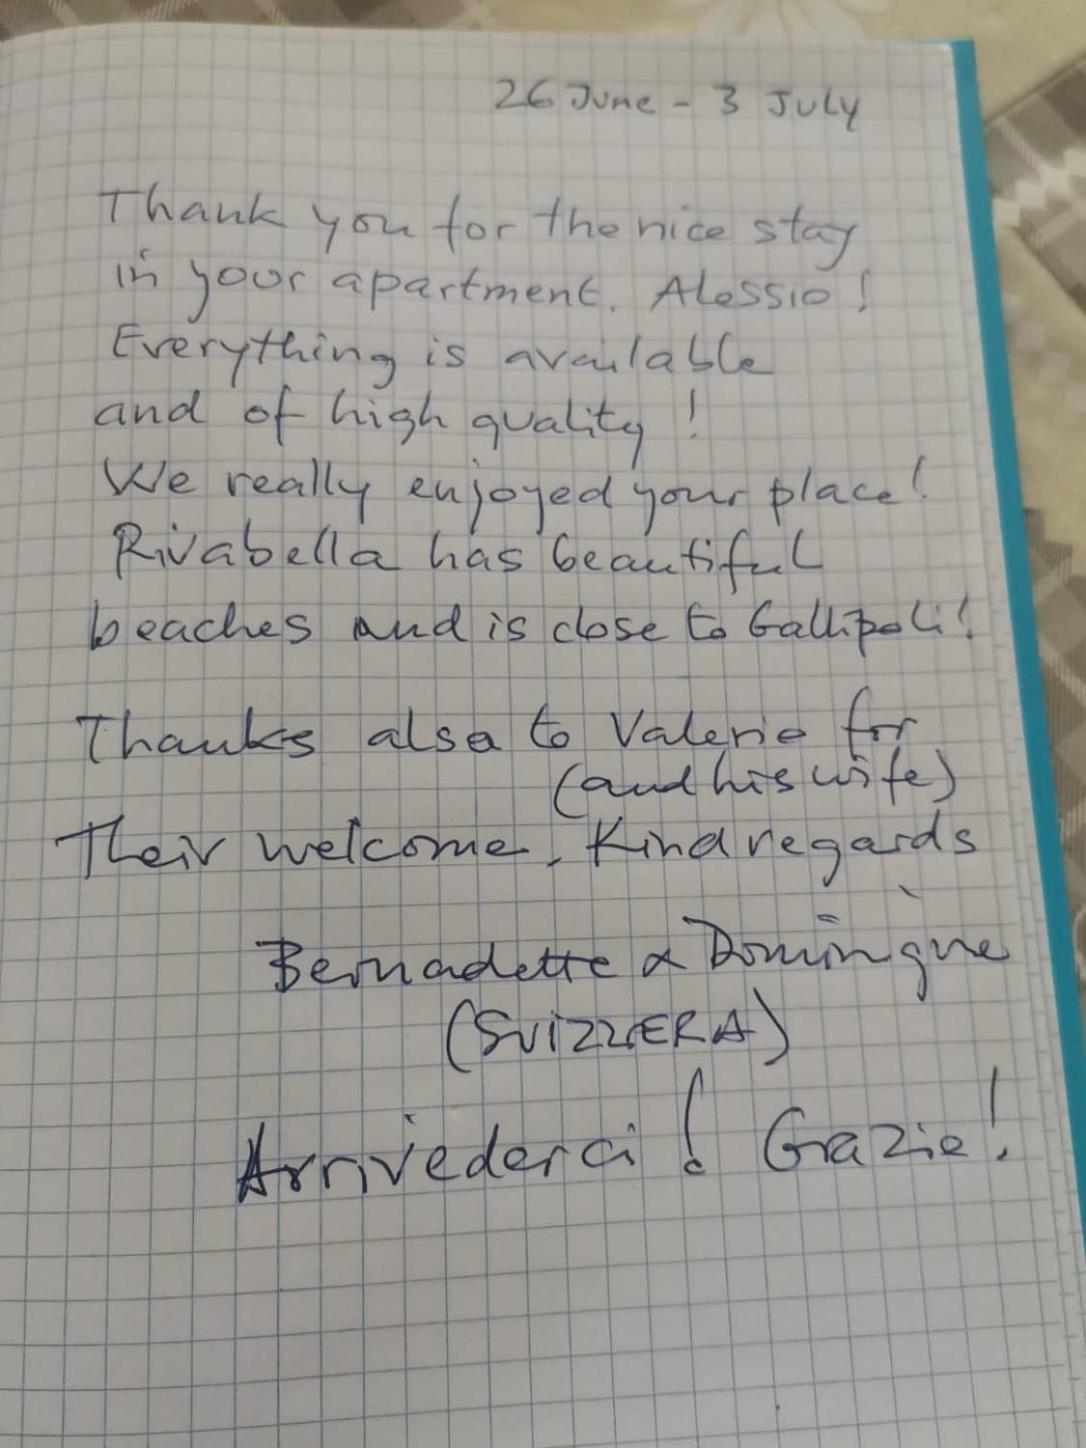 26 June - 3 July
Thank you for the nice stay
in your apartment. Alessio!
Everything is available
and of high quality!
We really enjoyed your place!
Rivabella has beautiful
beaches and is close to Gallipoli!
Thanks also to Valerio for
(and his wife)
Their welcome. Kind regards
Bernadette & Dominique
(SVIZZERA)
Arrivederci! Grazie!